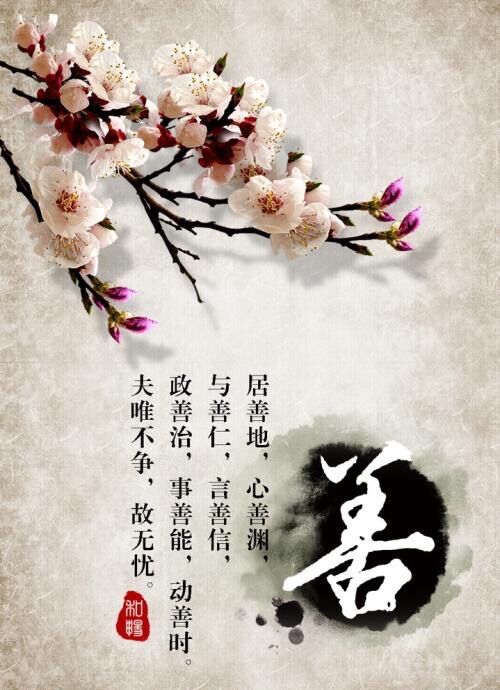 善
居善地，心善渊，
与善仁，言善信，
政善治，事善能，动善时。
夫唯不争，故无忧。
和畅